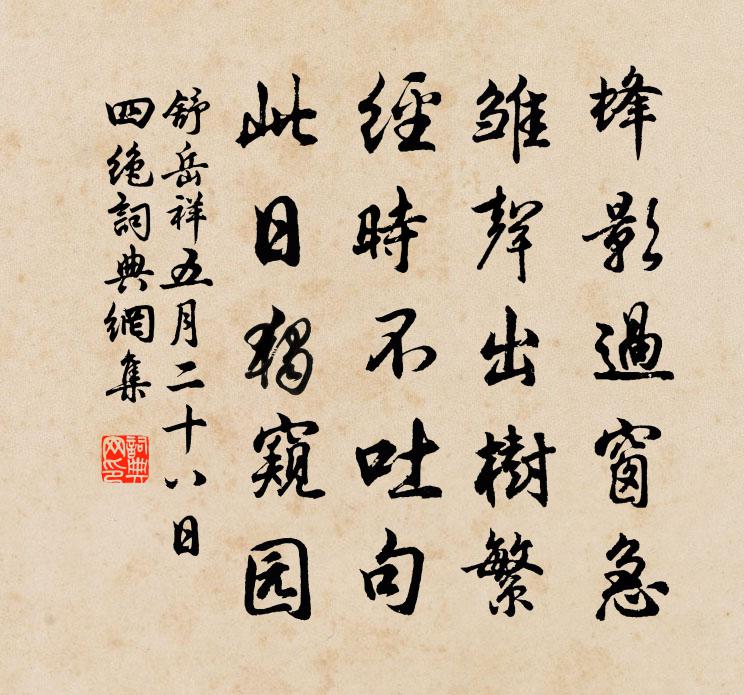 蜂影過窗急
雏聲出樹繁
經時不吐句
此日獨窺园
舒岳祥五月二十八日
四絶詞典網集
詞典网印